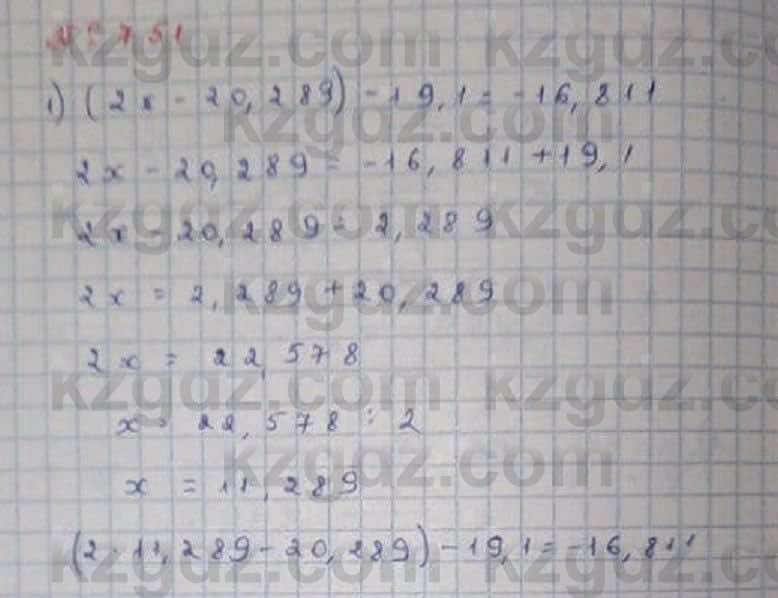 № 751
1) (2x - 20,289) - 19,1 = -16,811
2x - 20,289 = -16,811 + 19,1
2x - 20,289 = 2,289
2x = 2,289 + 20,289
2x = 22,578
x = 22,578 : 2
x = 11,289
(2 · 11,289 - 20,289) - 19,1 = -16,811
kzgdz.com